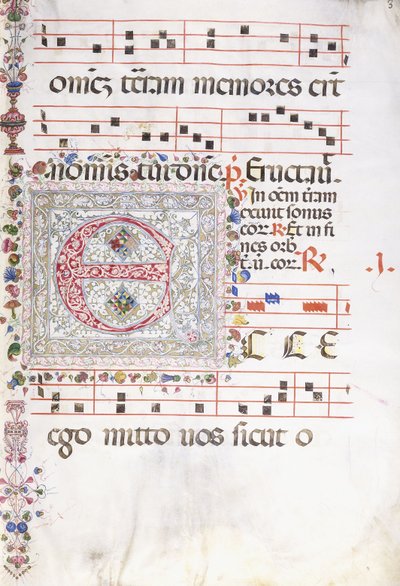 3
omnē terram memores erūt
nominis tui dom̄e ꝑ Eructaū
V In oēm t̄ram
exiuit sonus
eor. R Et in fi
nes orb
t̄.ū. eor. R. .J.
E CCE
ego mitto uos sicut o